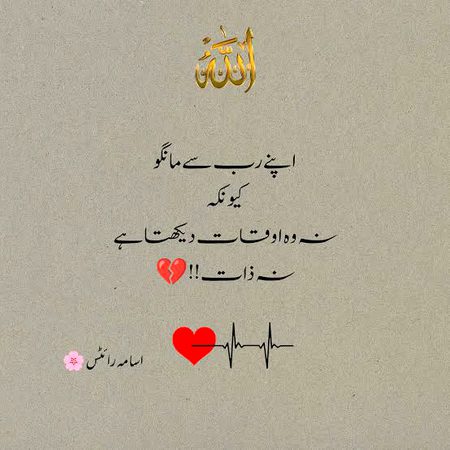 الله
اپنے رب سے مانگو
کیونکہ
نہ وہ اوقات دیکھتا ہے
نہ ذات !!💔
اسامہ رائٹس 🌸